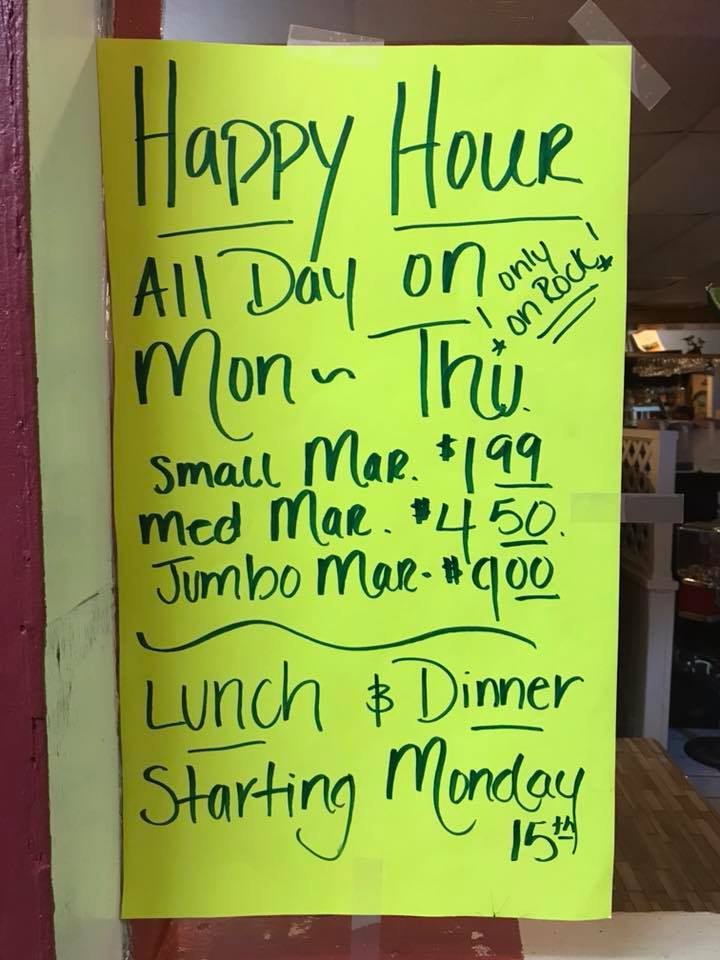 Happy Hour
All Day on
only
on Rock
Mon ~ Thu.
Small Mar. $1 99
med Mar. $4 50.
Jumbo Mar. $9 00
Lunch & Dinner
Starting Monday
15th